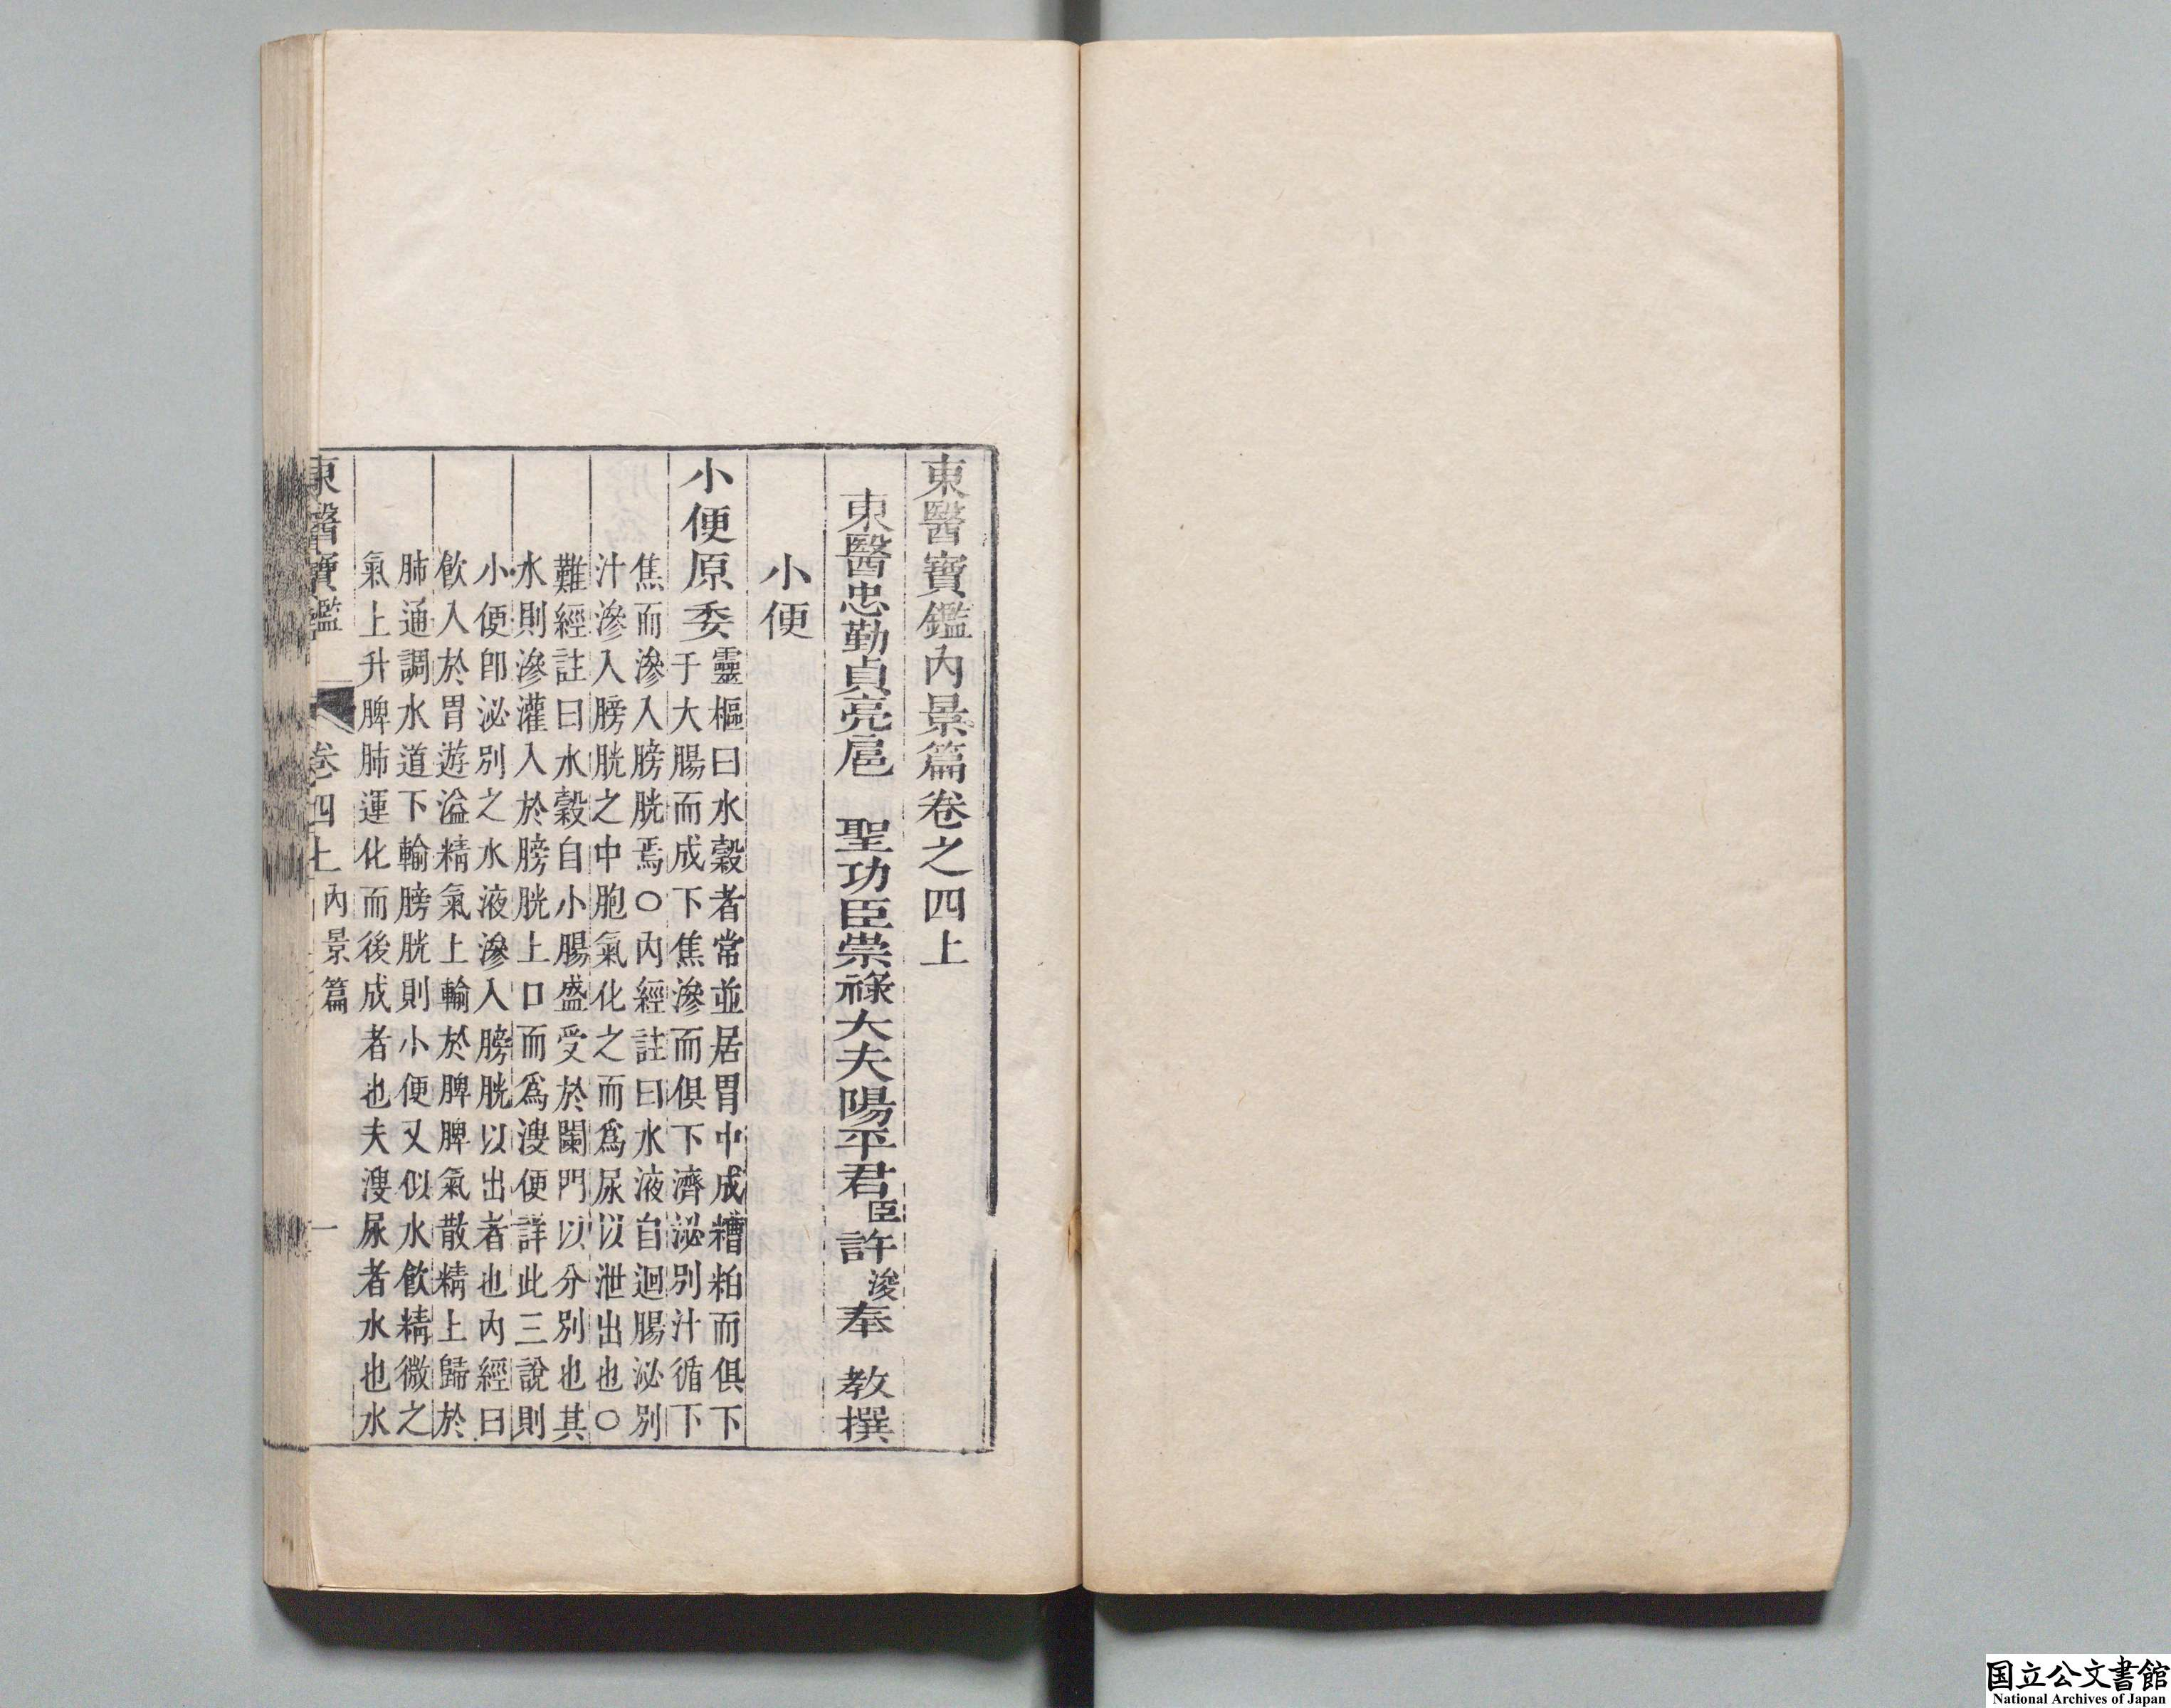 東醫寶鑑內景篇卷之四上
東醫忠勤貞亮扈 聖功臣崇祿大夫陽平君臣許浚奉 教撰
小便
小便原委 靈樞曰水穀者常並居胃中成糟粕而俱下
于大腸而成下焦滲而俱下濟泌別汁循下
焦而滲入膀胱焉○內經註曰水液自迴腸泌別
汁滲入膀胱之中胞氣化之而爲尿以泄出也○
難經註曰水穀自小腸盛受於闌門以分別也其
水則滲灌入於膀胱上口而爲溲便詳此三說則
小便卽泌別之水液滲入膀胱以出者也內經曰
飮入於胃遊溢精氣上輸於脾脾氣散精上歸於
肺通調水道下輸膀胱則小便又似水飮精微之
氣上升脾肺運化而後成者也夫溲尿者水也水
東醫寶鑑 卷四上 內景篇 一
国立公文書館
National Archives of Japan